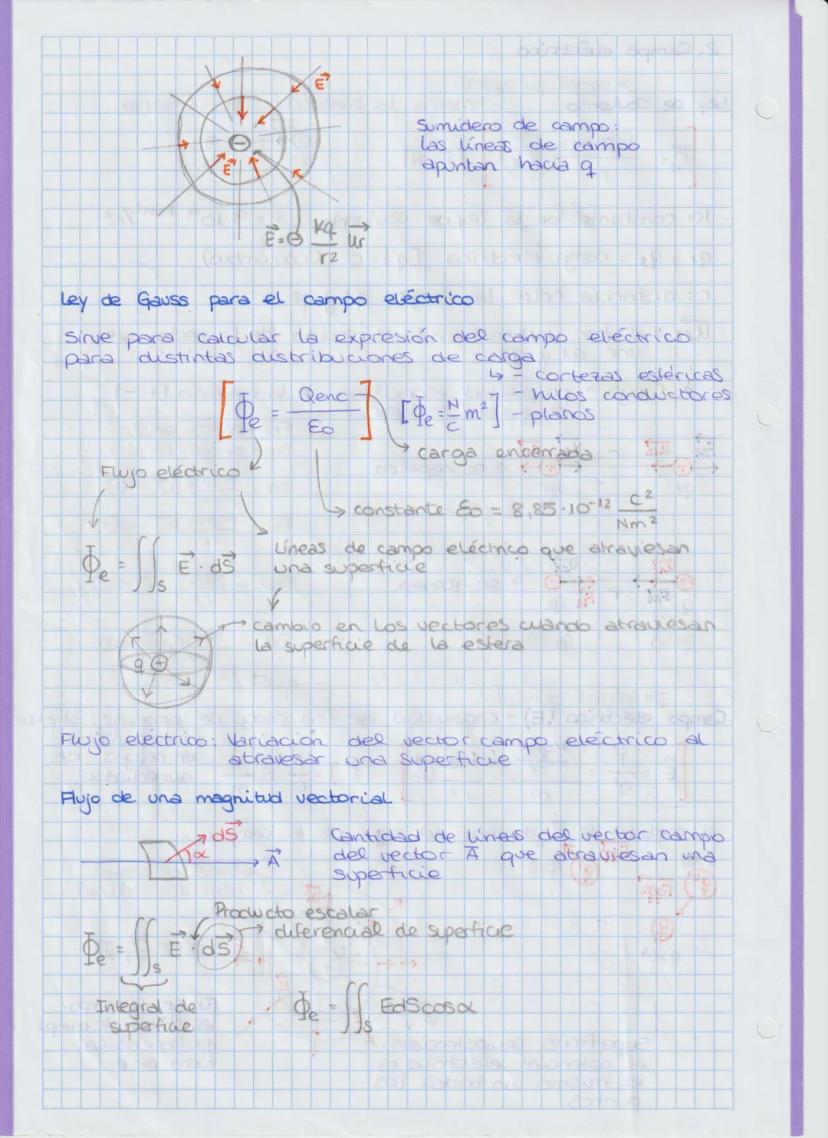 E⃗
Sumidero de campo:
las líneas de campo
apuntan hacia q
E⃗
E⃗ = ⊖ Kq/r² u⃗r
Ley de Gauss para el campo eléctrico
Sirve para calcular la expresión del campo eléctrico
para distintas distribuciones de carga
↳ - cortezas esféricas
- hilos conductores
- planos
[Φe = Qenc/εo] [Φe = N/C m²]
carga encerrada
Flujo eléctrico
constante εo = 8,85·10⁻¹² C²/Nm²
Φe = ∬s E⃗ · dS⃗
Líneas de campo eléctrico que atraviesan
una superficie
q ⊕
cambio en los vectores cuando atraviesan
la superficie de la esfera
Flujo eléctrico: Variación del vector campo eléctrico al
atravesar una superficie
Flujo de una magnitud vectorial
dS⃗
α A⃗
Cantidad de líneas del vector campo
del vector A̅ que atraviesan una
superficie
Producto escalar
Φe = ∬s E⃗ · dS⃗ → diferencial de superficie
Integral de
superficie
Φe = ∬s EdScosα